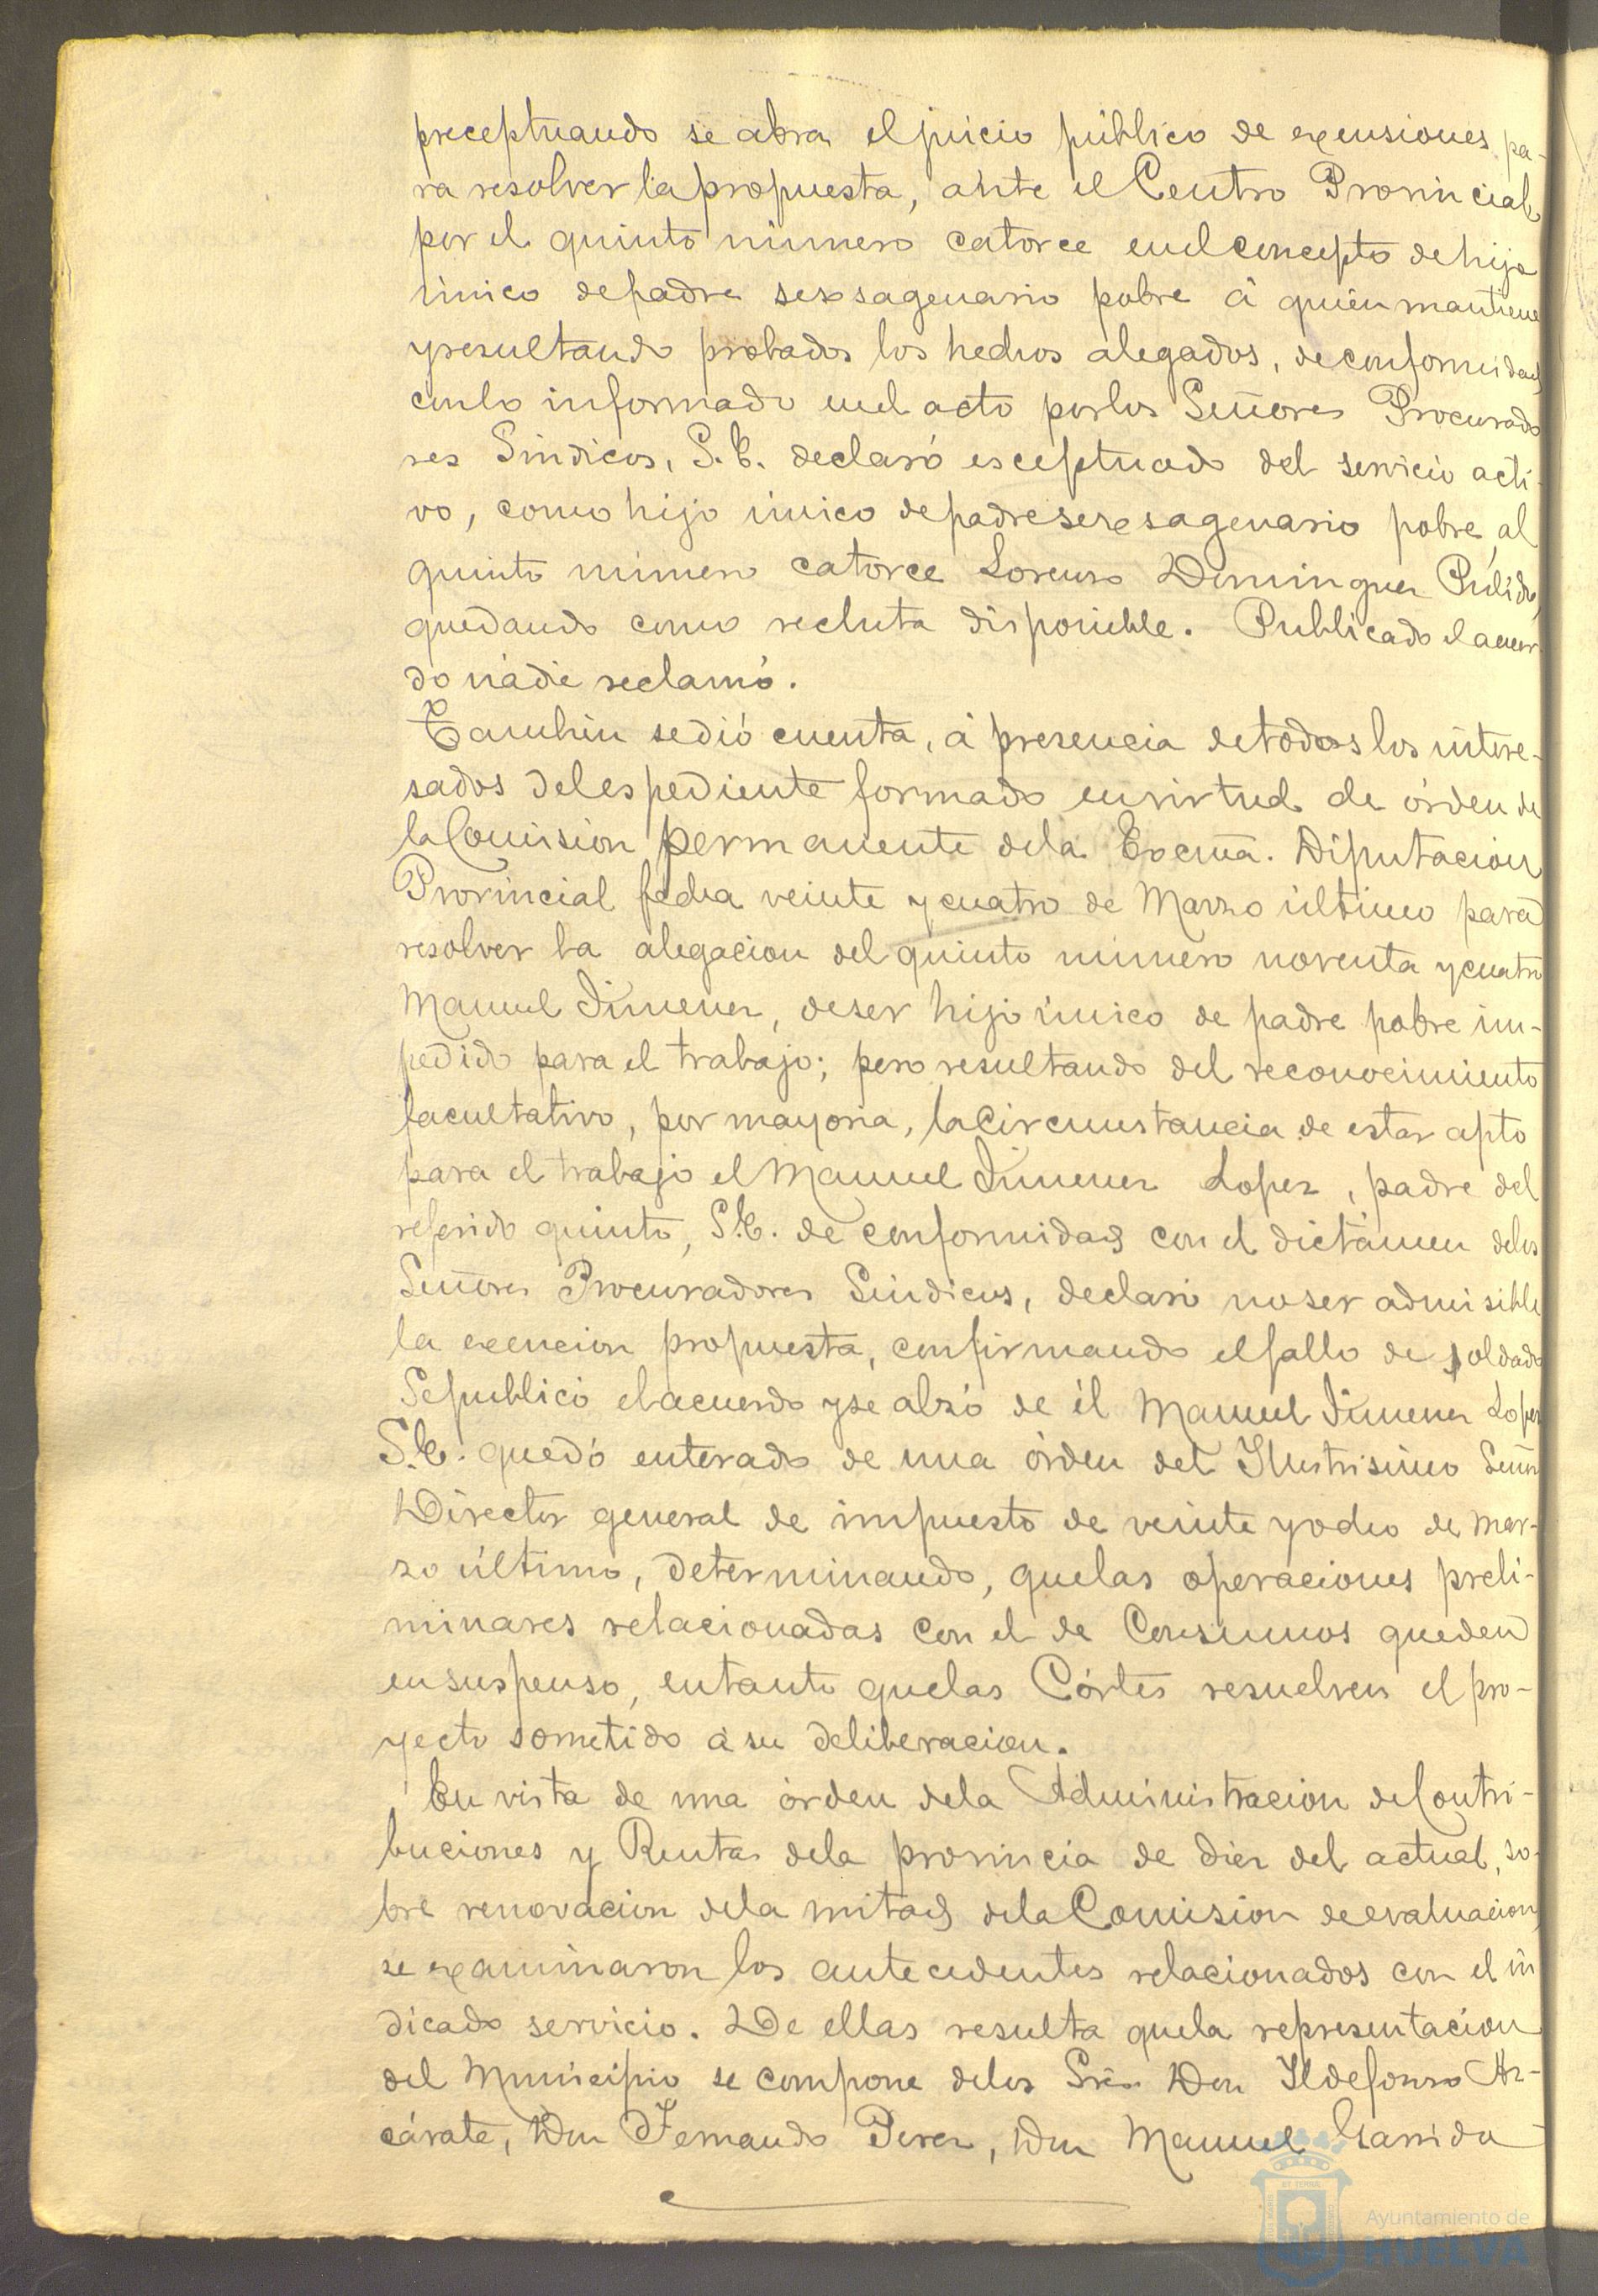 preceptuando se abra el juicio público de exensiones pa-
ra resolver la propuesta, ante el Centro Provincial
por el quinto número catorce en el concepto de hijo
único de padre sexsagenario pobre á quién mantiene
y resultando probados los hechos alegados, de conformidad
con lo informado en el acto por los Señores Procurado
res Síndicos, S.E. declaró esceptuado del servicio acti-
vo, como hijo único de padre sexsagenario pobre, al
quinto número catorce Lorenzo Dominguez Pulido,
quedando como recluta disponible. Publicado el acuer-
do nádie reclamó.
Tambien se dió cuenta, á presencia de todos los intere-
sados del espediente formado en virtud de órden de
la Comision permanente de la Excma. Diputacion
Provincial fecha veinte y cuatro de Marzo último para
resolver la alegacion del quinto número noventa y cuatro
Manuel Jimenez, de ser hijo único de padre pobre im-
pedido para el trabajo; pero resultando del reconocimiento
facultativo, por mayoria, la circunstancia de estar apto
para el trabajo el Manuel Jimenez Lopez, padre del
referido quinto, S.E. de conformidad con el dictámen de los
Señores Procuradores Síndicos, declaró no ser admisible
la exencion propuesta, confirmando el fallo de soldado
Se publicó el acuerdo y se alzó de él Manuel Jimenez Lopez
S.E. quedó enterado de una órden del Ilustrisimo Señor
Director general de impuesto de veinte y ocho de Mar-
zo último, determinando, que las operaciones preli-
minares relacionadas con el de Consumos queden
en suspenso, en tanto que las Córtes resuelven el pro-
yecto sometido á su deliberacion.
En vista de una órden de la Administracion de Contri-
buciones y Rentas de la provincia de diez del actual, so-
bre renovacion de la mitad de la Comision de evaluacion,
se examinaron los antecedentes relacionados con el in
dicado servicio. De ellas resulta que la representacion
del Municipio se compone de los Sres Don Ildefonso Az-
cárate, Don Fernando Perez, Don Manuel Garrido
Ayuntamiento de
HUELVA